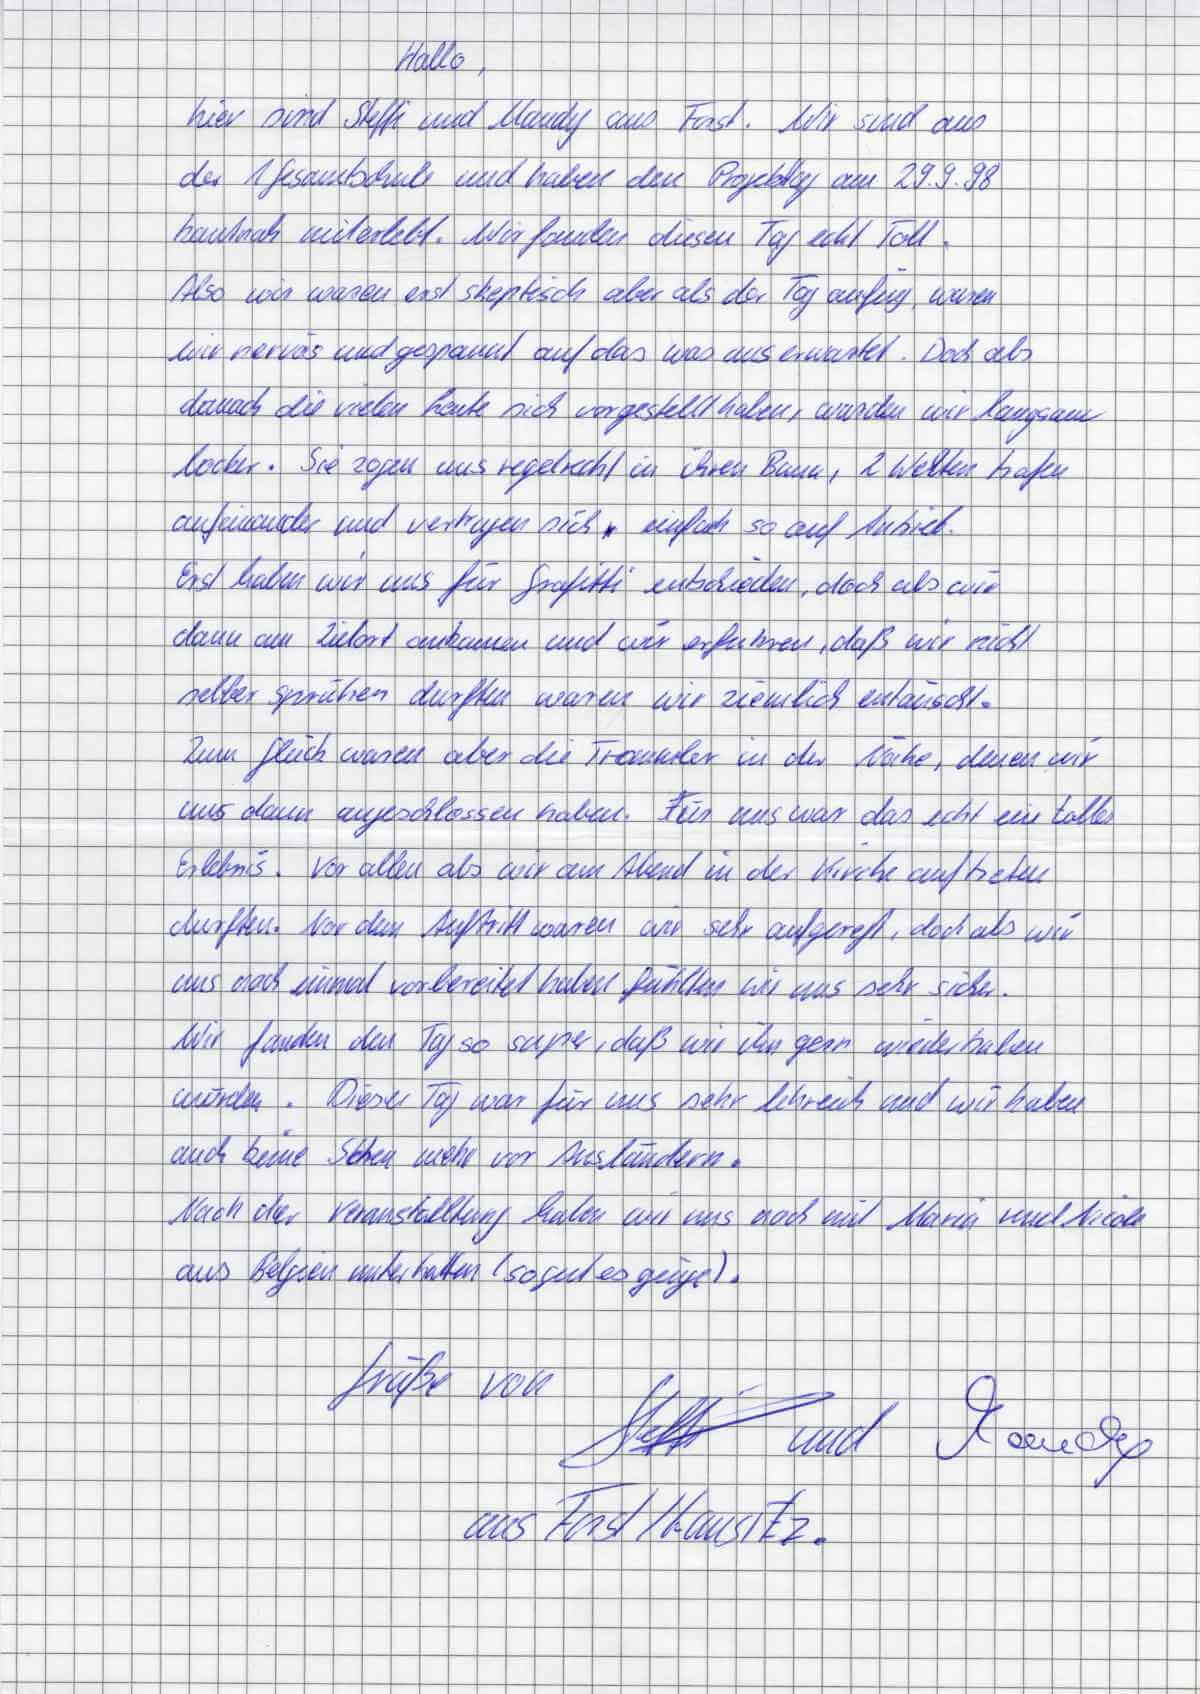 Hallo,
hier sind Steffi und Mandy aus Forst. Wir sind aus
der 1 Gesamtschule und haben den Projekttag am 29.9.98
hautnah miterlebt. Wir fanden diesen Tag echt Toll.
Also wir waren erst skeptisch aber als der Tag anfing, waren
wir nervös und gespannt auf das was uns erwartet. Doch als
danach die vielen Leute sich vorgestellt haben, wurden wir langsam
locker. Sie zogen uns regelrecht in ihren Bann, 2 Welten trafen
aufeinander und vertrugen sich, einfach so auf Antrieb.
Erst haben wir uns für Grafitti entschieden, doch als wir
dann am Zielort ankamen und wir erfuhren, daß wir nicht
selber sprühen durften waren wir ziemlich entäuscht.
Zum Glück waren aber die Trommler in der Nähe, denen wir
uns dann angeschlossen haben. Für uns war das echt ein tolles
Erlebnis. Vor allen als wir am Abend in der Kirche auftreten
durften. Vor dem Auftritt waren wir sehr aufgeregt, doch als wir
uns noch einmal vorbereitet haben fühlten wir uns sehr sicher.
Wir fanden den Tag so super, daß wir ihn gern wiederhaben
würden. Dieser Tag war für uns sehr lehreich und wir haben
auch keine Scheu mehr vor Ausländern.
Nach der Veranstalltung haben wir uns noch mit Maria und Nicole
aus Belgien unterhalten (so gut es ginge).
Grüße von
Steffi und Mandy
aus Forst/Lausitz.